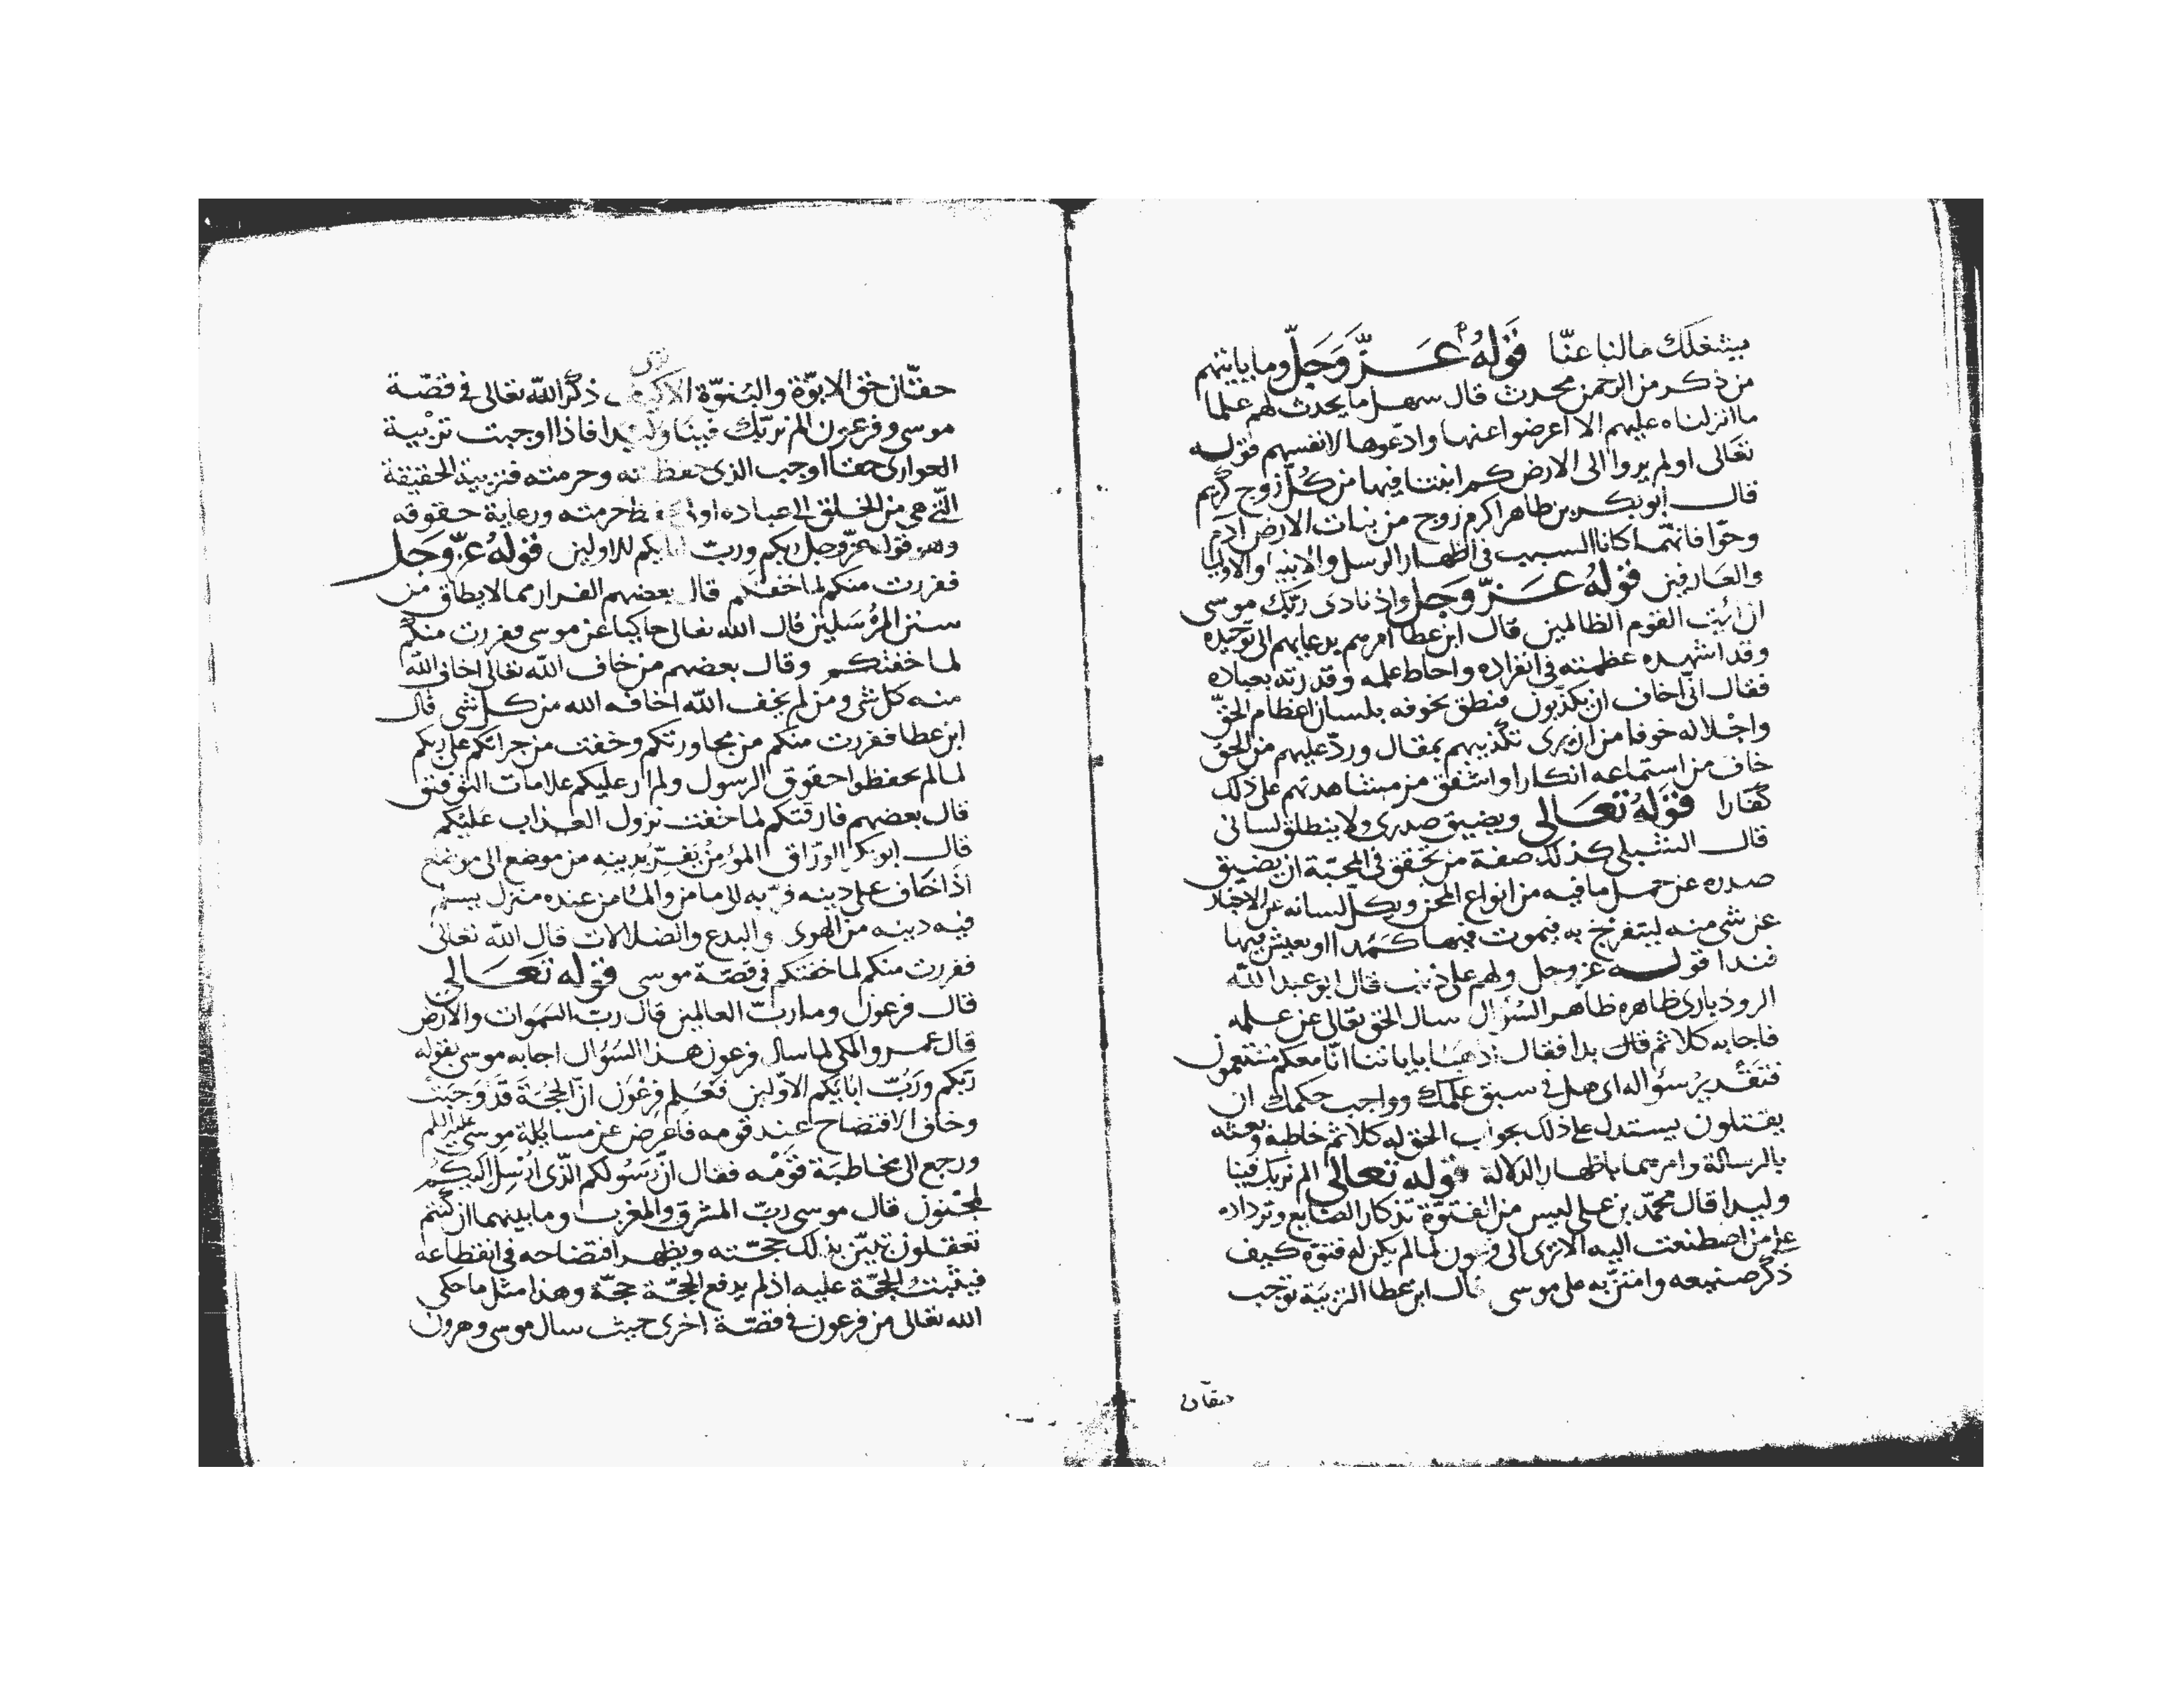 يشغلك مالنا عنا قوله عز وجل وما ياتيهم
من ذكر من الرحمن محدث قال سهل ما يحدث لهم علما
ما انزلناه عليهم الا اعرضوا عنها وادعوها لانفسهم قوله
تعالى اولم يروا الى الارض كم انبتنا فيها من كل زوج كريم
قال ابو بكر بن طاهر اكرم زوج من نبات الارض ادم
وحوا فانهما كانا السبب في اظهار الرسل والانبيا والاوليا
والعارفين قوله عز وجل واذ نادى ربك موسى
ان ائت القوم الظالمين قال ابن عطا امرهم بدعايهم الى توحيده
وقد اشهده عظمته في انفراده واحاط علمه وقدرته بعباده
فقال اني اخاف ان يكذبون فنطق بخوفه بلسان اعظام الحق
واجلاله خوفا من ان يرى تكذيبهم بمقال ورد عليهم من الحق
خاف من استماعه انكارا واشفق من مشاهدتهم على ذلك
كفارا قوله تعالى ويضيق صدري ولا ينطلق لساني
قال الشبلي كذلك صفة من تحقق في المحبة ان يضيق
صدره عن حمل ما فيه من انواع المحن ويكل لسانه عن الاخبار
عن شي منه ليتفرج به فيموت فيها كمدا او يعيش فيها
فندا قوله عز وجل ولهم علي ذنب قال ابو عبد الله
الروذباري ظاهره ظاهر السؤال سال الحق تعالى عن علمه
فاجابه كلا ثم قال بدا فقال اذهبا باياتنا انا معكم مستمعون
فتقدير سؤاله اي هل في سبق علمك وواجب حكمك ان
يقتلون يستدل على ذلك بجواب الحق له كلا ثم خاطبه وبعثه
بالرسالة وامرهما باظهار الدلالة قوله تعالى الم نربك فينا
وليدا قال محمد بن علي ليس من الفتوة تذكار الصنايع وترداده
على من اصطنعت اليه الا ترى الى فرعون لما لم يكن له فتوة كيف
ذكر صنيعه وامتن به على موسى قال ابن عطا التربية توجب
حقان
حقا من حق الابوة والبنوة الا ترى ذكر الله تعالى في قصة
موسى وفرعون الم نربك فينا وليدا فاذا اوجبت تربية
العواري حقا اوجب الذي حفظ وحرمته فتربية الحقيقة
التي هي من الخلق الى عباده اولى حرمته ورعاية حقوقه
وهو قوله عز وجل ربكم ورب ابايكم للاولين قوله عز وجل
ففررت منكم لما خفتكم قال بعضهم الفرار مما لا يطاق من
سنن المرسلين قال الله تعالى حاكيا عن موسى ففررت منكم
لما خفتكم وقال بعضهم من خاف الله تعالى اخاف الله
منه كل شي ومن لم يخف الله اخافه الله من كل شي قال
ابن عطا ففررت منكم من مجاورتكم وخفت من جرائكم على ربكم
لما لم تحفظوا حقوق الرسول ولم ار عليكم علامات التوفيق
قال بعضهم فارقتكم لما خفت نزول العذاب عليكم
قال ابو بكر الوراق المؤمن يفر بدينه من موضع الى موضع
اذا خاف على دينه فر به الى مامن والمامن عنده منزل يسلم
فيه دينه من الهوى والبدع والضلالات قال الله تعالى
ففررت منكم لما خفتكم في قصة موسى قوله تعالى
قال فرعون وما رب العالمين قال رب السموات والارض
قال عمرو المكي لما سال فرعون هذا السؤال اجابه موسى بقوله
ربكم ورب ابايكم الاولين فعلم فرعون ان الحجة قد وجبت
وخاف الافتضاح عند قومه فاعرض عن مسايلة موسى عليه السلم
ورجع الى مخاطبة قومه فقال ان رسولكم الذي ارسل اليكم
لمجنون قال موسى رب المشرق والمغرب وما بينهما ان كنتم
تعقلون تبين بذلك حجته ويظهر افتضاحه في انقطاعه
فيثبت الحجة عليه اذ لم يدفع الحجة حجة وهذا مثل ما حكى
الله تعالى من فرعون في قصة اخرى حيث سال موسى وهرون